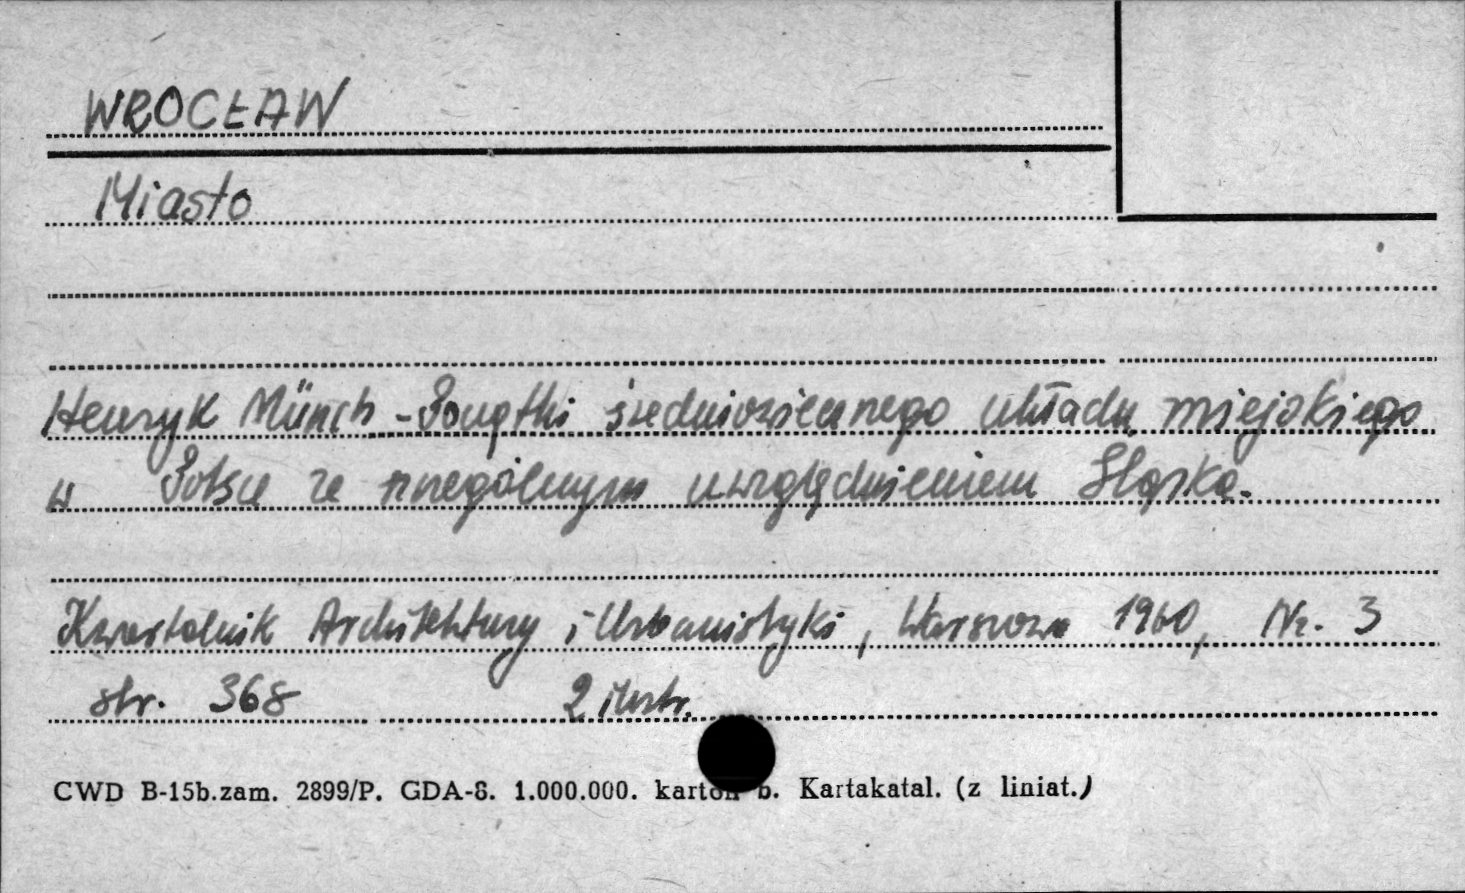 WROCŁAW
Miasto
Henryk Münch - Początki średniowiecznego układu miejskiego
w Polsce ze szczególnym uwzględnieniem Śląska.
Kwartalnik Architektury i Urbanistyki, Warszawa 1960, Nr. 3
str. 368 2 ilustr.
CWD B-15b.zam. 2899/P. GDA-8. 1.000.000. karton b. Kartakatal. (z liniat.)